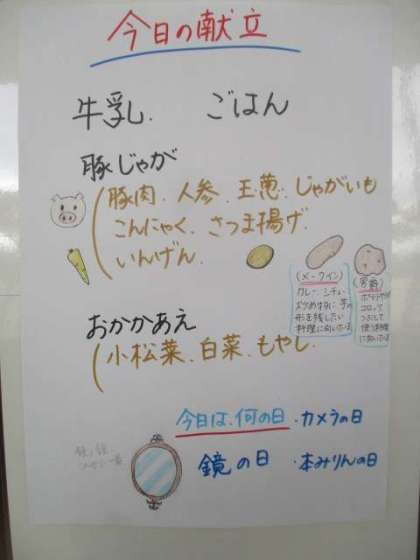 今日の献立
牛乳. ごはん
豚じゃが
豚肉. 人参. 玉葱. じゃがいも
こんにゃく. さつま揚げ.
いんげん.
(メークイン)
カレー・シチュー
形を残したい
料理に向いている
(男爵)
コロッケ
つぶして
使う料理
に向いている
おかかあえ
小松菜. 白菜. もやし.
今日は. 何の日・カメラの日
鏡の日 ・本みりんの日